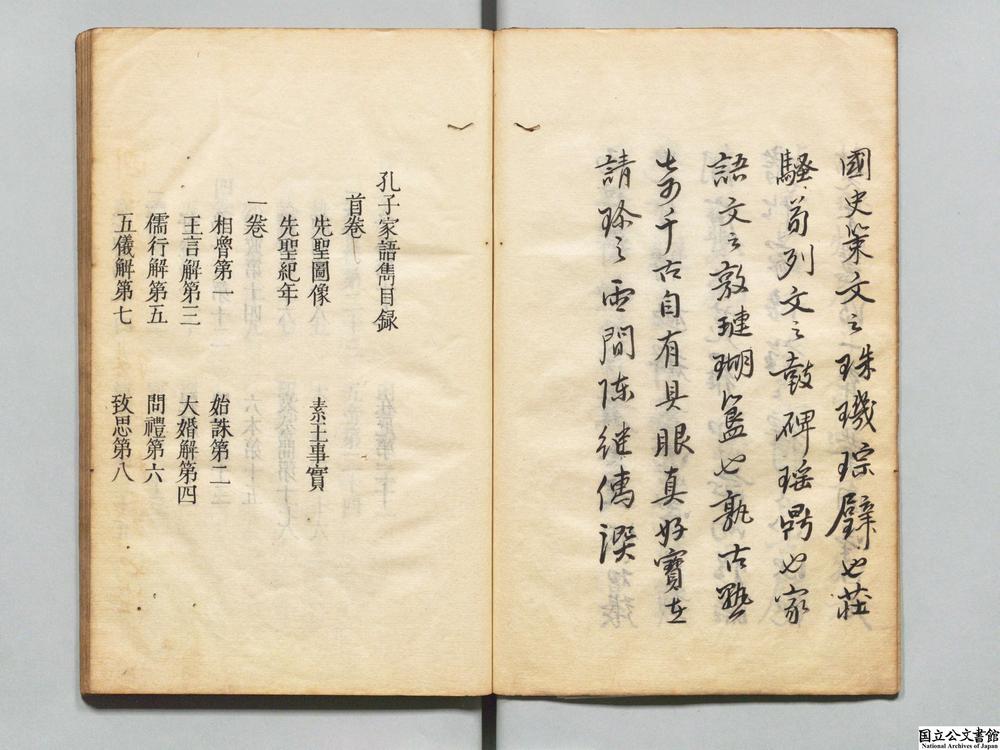 國史策文之珠璣琮璧也莊
騷荀列文之鼓碑瑶鼎也家
語文之敦璉瑚簋也孰古孰
奇千古自有具眼真好寶在
請珍之雲間陳繼儒譔
孔子家語雋目録
首卷
先聖圖像 素王事實
先聖紀年
一卷
相魯第一 始誅第二
王言解第三 大婚解第四
儒行解第五 問禮第六
五儀解第七 致思第八
国立公文書館
National Archives of Japan